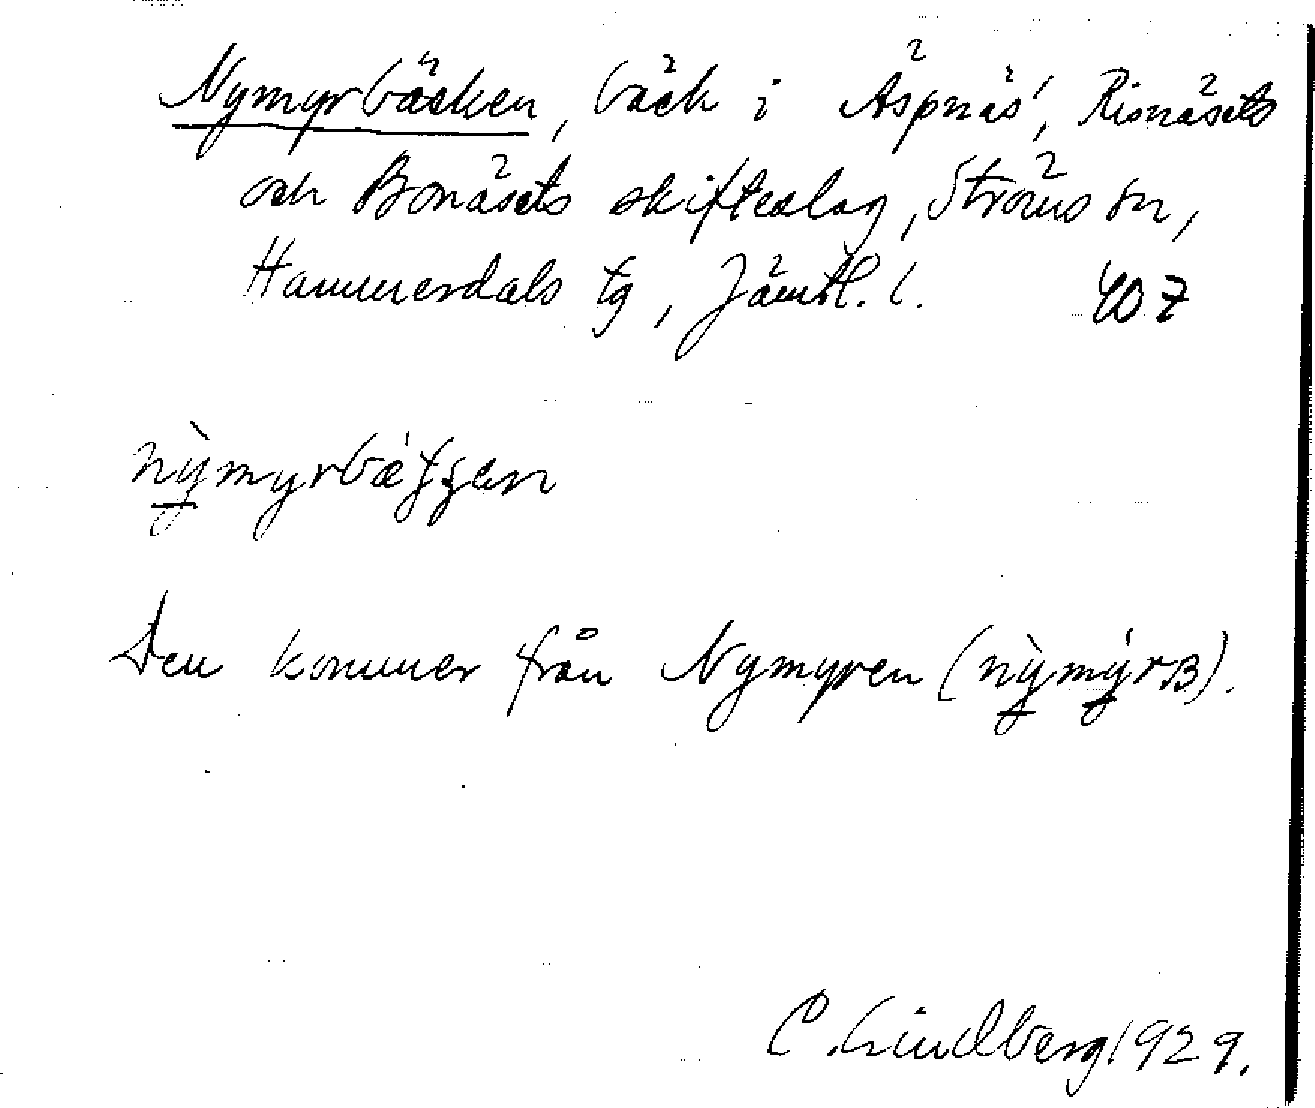 Nymyrbäcken, bäck i Äspnäs', Risnäsets
och Bonäsets skifteslag, Ströms sn,
Hammerdals tg, Jämtl. l. 407
nỳmyrbǽʈʂen
Den kommer från Nymyren (nỳmýrɴ).
C. Lindberg 1929.